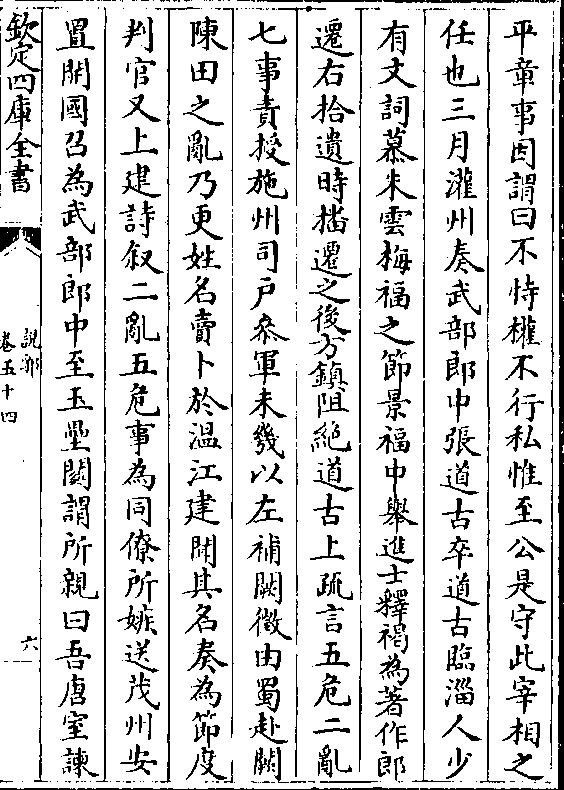 平章事因謂曰不恃權不行私惟至公是守此宰相之
任也三月灌州奏武部郎中張道古卒道古臨淄人少
有文詞慕朱雲梅福之節景福中舉進士釋褐為著作郎
遷右拾遺時播遷之後方鎮阻絕道古上疏言五危二亂
七事責授施州司戶叅軍未幾以左補闕徵由蜀赴闕
陳田之亂乃更姓名賣卜於溫江建聞其名奏為節度
判官又上建詩叙二亂五危事為同僚所嫉送茂州安
置開國召為武部郎中至玉壘闕謂所親曰吾唐室諫
欽定四庫全書
說郛
卷五十四
六